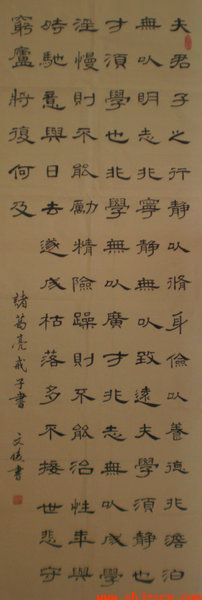 夫君子之行靜以脩身儉以養德非澹泊
無以明志非寧靜無以致遠夫學須靜也
才須學也非學無以廣才非志無以成學
淫慢則不能勵精險躁則不能治性年與
時馳意與日去遂成枯落多不接世悲守
窮廬將復何及
諸葛亮戒子書 文 書